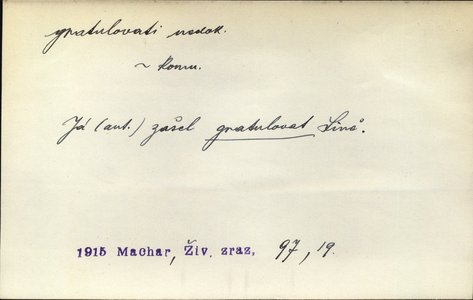 gratulovati nedok.
~ komu.
Já (aut.) zašel gratulovat Líně.
1915 Machar, Živ. zraz, 97, 19.